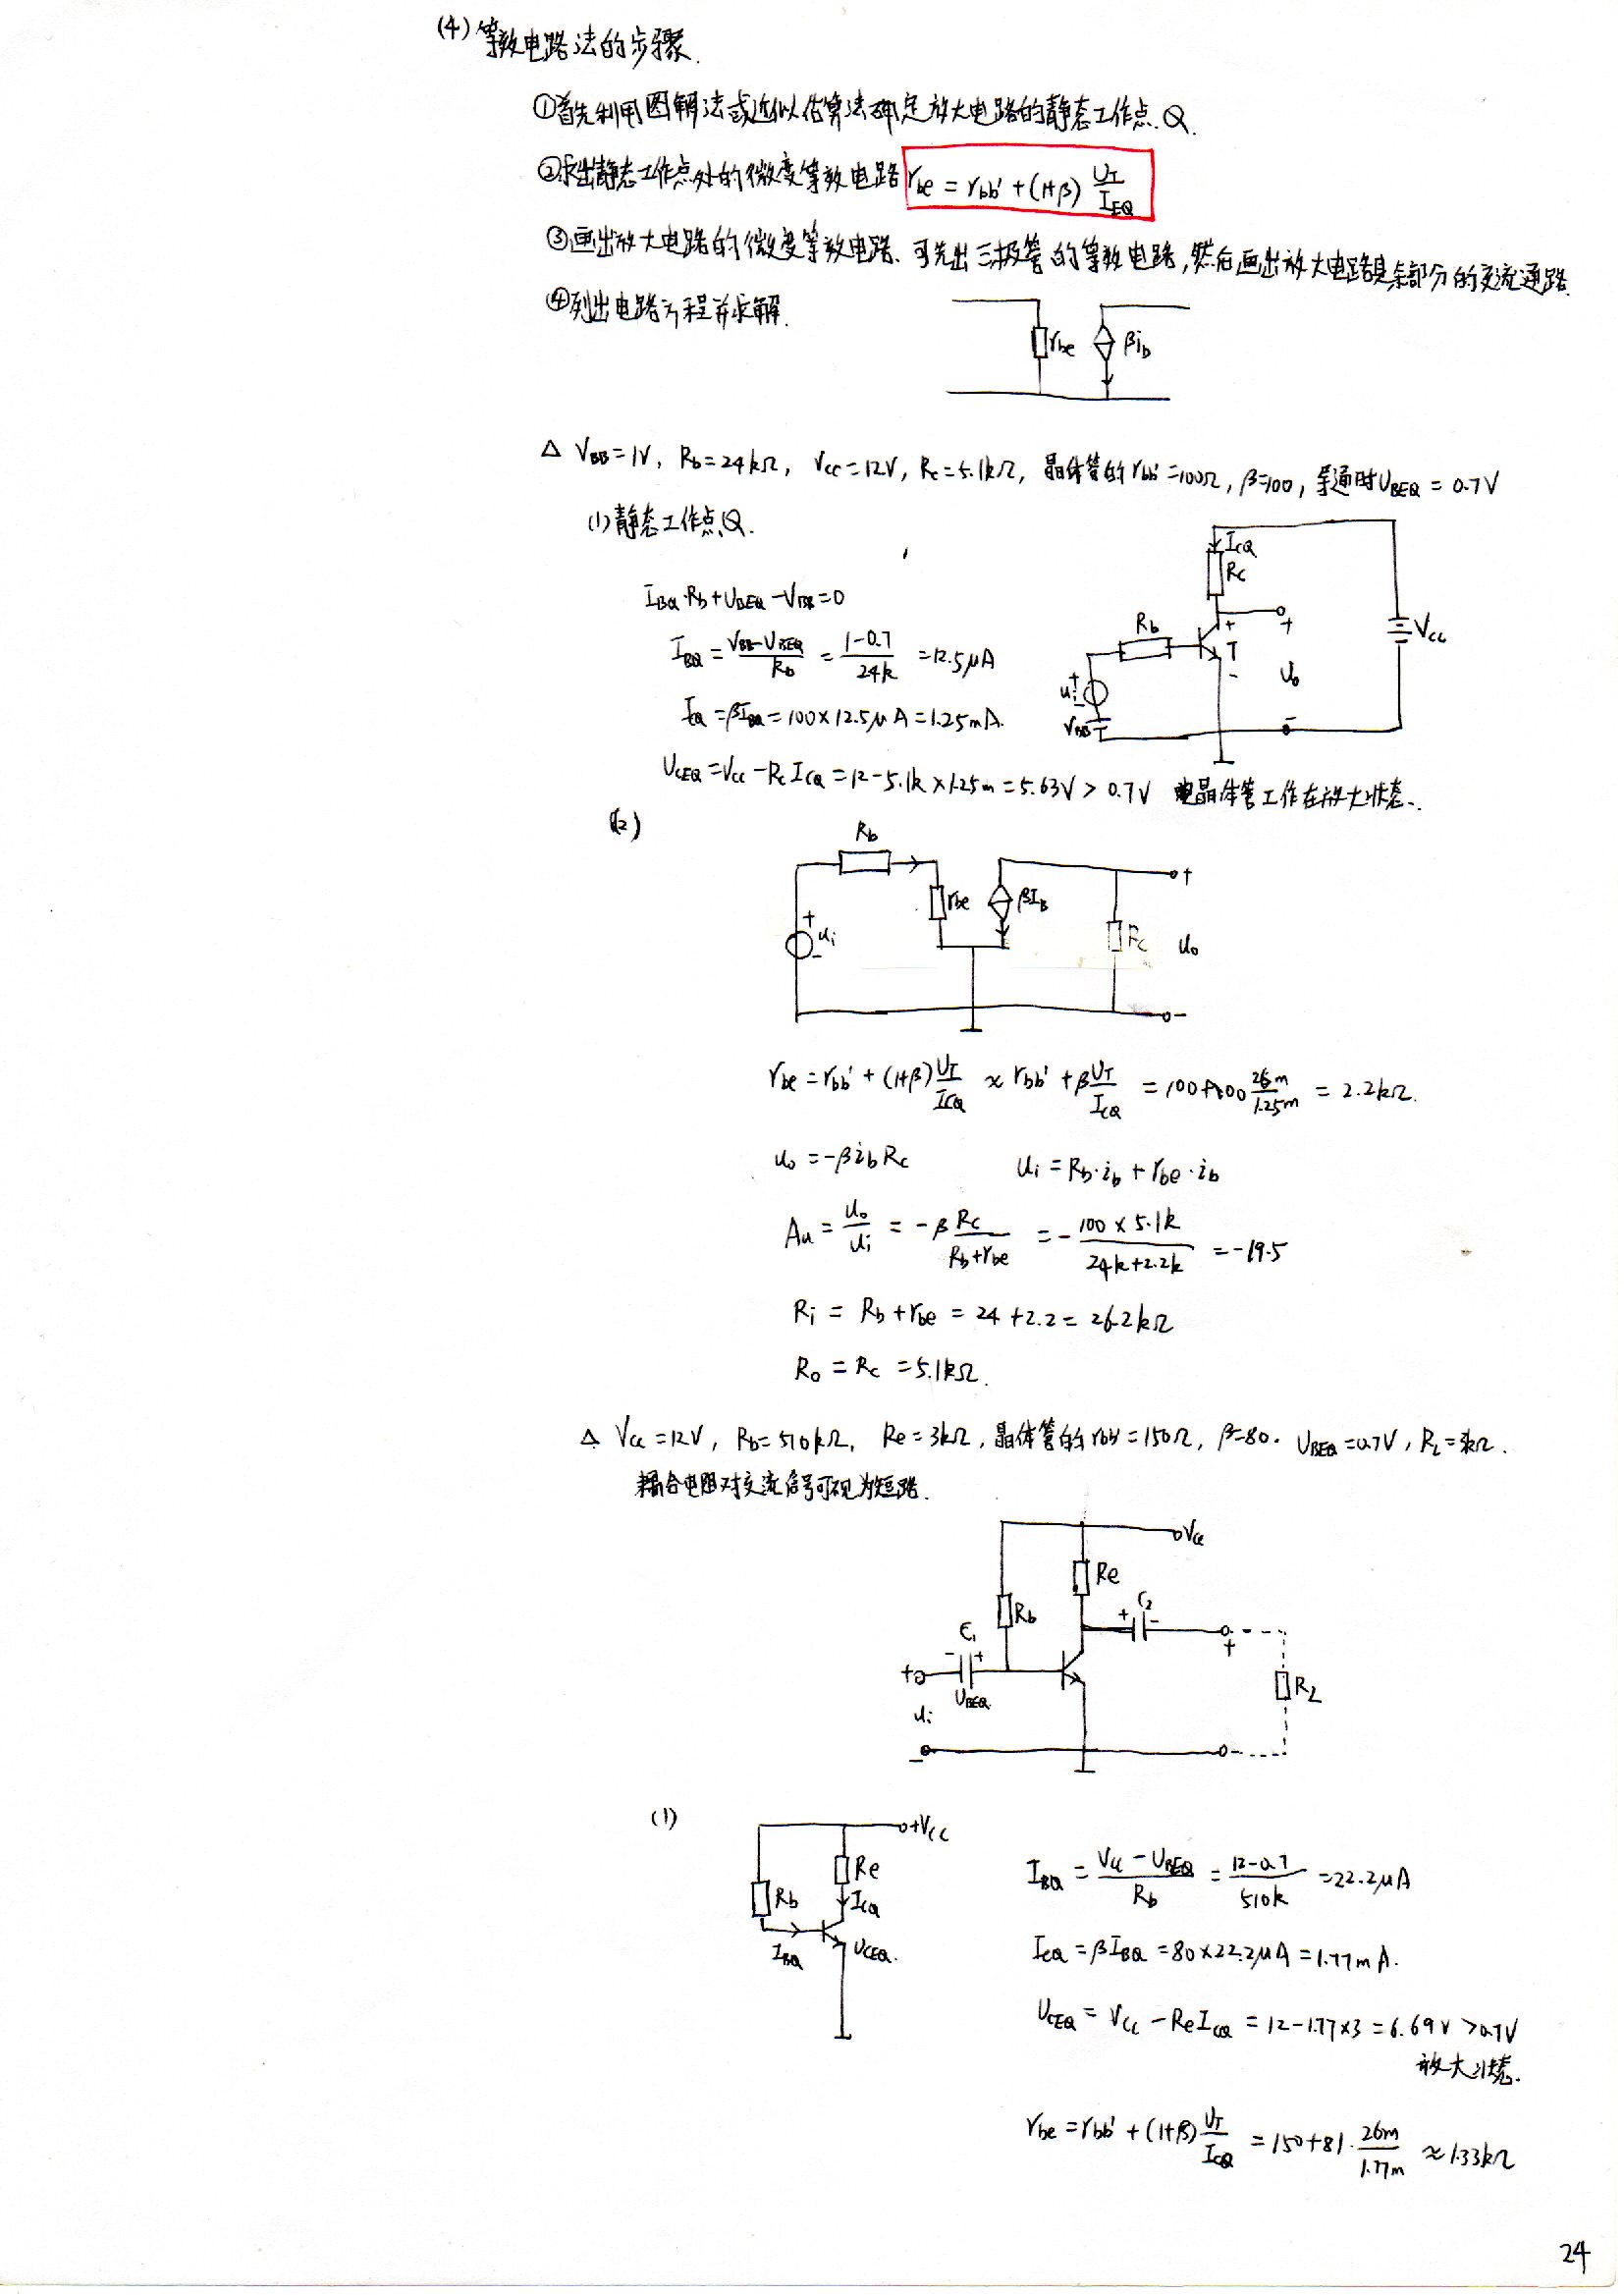 (4) 等效电路法的步骤.
①首先利用图解法或近似估算法确定放大电路的静态工作点Q.
②求出静态工作点处的微变等效电路 rbe = rbb' + (1+β) UT/IEQ
③画出放大电路的微变等效电路. 可先出三极管的等效电路,然后画出放大电路其余部分的交流通路.
④列出电路方程并求解.
rbe βib
△ VBB=1V, Rb=24kΩ, VCC=12V, Rc=5.1kΩ, 晶体管的rbb'=100Ω, β=100, 导通时UBEQ = 0.7V
(1) 静态工作点Q.
ICQ
Rc
Rb
+
T
-
+
Uo
-
VCC
+
ui
-
VBB
IBQ·Rb+UBEQ-VBB=0
IBQ = (VBB-UBEQ)/Rb = (1-0.7)/24k = 12.5μA
ICQ = βIBQ = 100×12.5μA = 1.25mA.
UCEQ = VCC - RcICQ = 12-5.1k×1.25m = 5.63V > 0.7V 晶体管工作在放大状态.
(2)
Rb
rbe βIB
+
ui
-
Rc
+
uo
-
rbe = rbb' + (1+β) UT/ICQ ≈ rbb' + β UT/ICQ = 100+100 26m/1.25m = 2.2kΩ.
uo = -βibRc ui = Rb·ib + rbe·ib
Au = uo/ui = -β Rc/(Rb+rbe) = - (100×5.1k)/(24k+2.2k) = -19.5
Ri = Rb + rbe = 24 + 2.2 = 26.2kΩ
Ro = Rc = 5.1kΩ.
△ VCC = 12V, Rb = 510kΩ, Re = 3kΩ, 晶体管的rbb' = 150Ω, β=80. UBEQ = 0.7V, RL = 3kΩ.
耦合电阻对交流信号可视为短路.
VCC
Re
Rb
C2
+ -
C1
- +
UBEQ
+
ui
-
+
-
RL
(1)
+VCC
Re
Rb
ICQ
IBQ
UCEQ.
IBQ = (VCC - UBEQ)/Rb = (12-0.7)/510k = 22.2μA
ICQ = βIBQ = 80×22.2μA = 1.77mA.
UCEQ = VCC - ReICQ = 12-1.77×3 = 6.69V > 0.7V
放大状态.
rbe = rbb' + (1+β) UT/ICQ = 150+81· 26m/1.77m ≈ 1.33kΩ
24